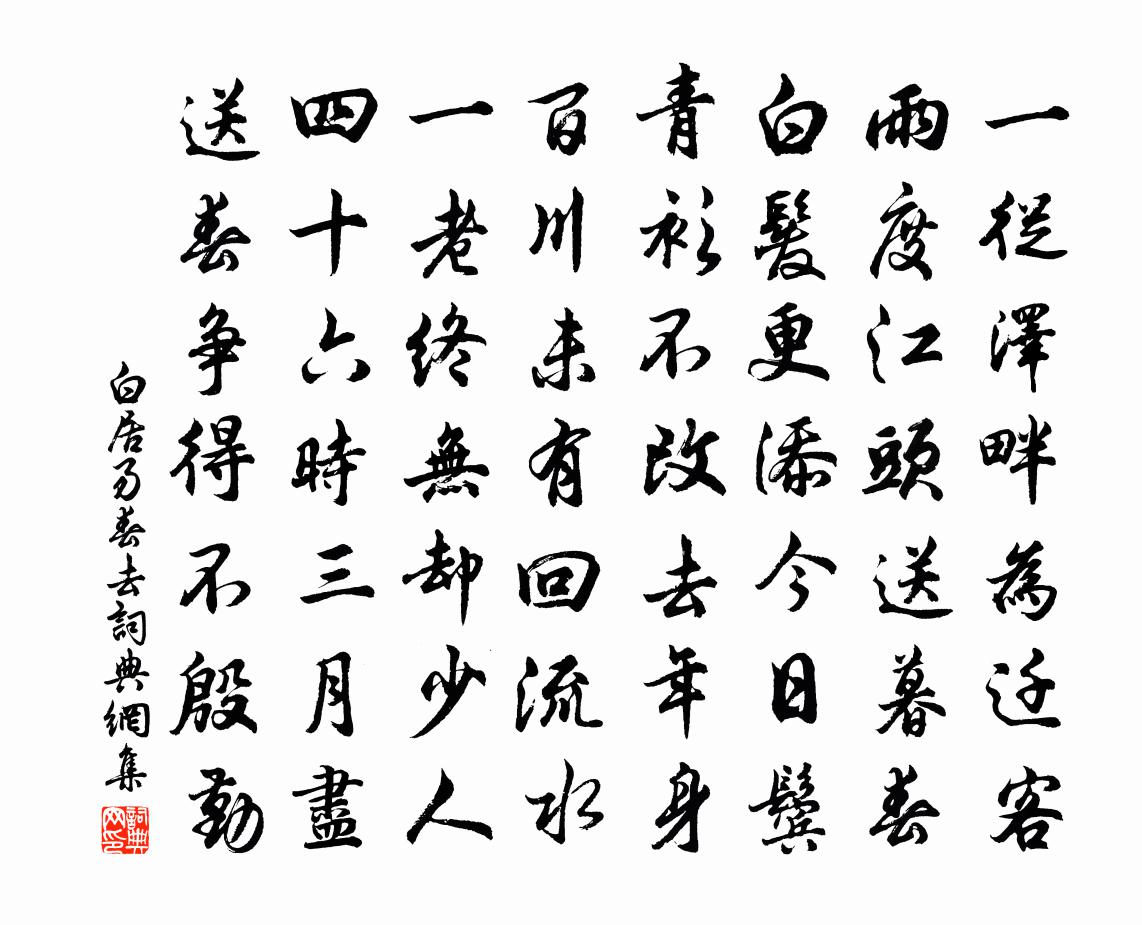 一從澤畔為迁客
兩度江頭送暮春
白髮更添今日鬢
青衫不改去年身
百川未有回流水
一老終無却少人
四十六時三月盡
送春爭得不殷勤
白居易春去詞典網集
詞典
网印